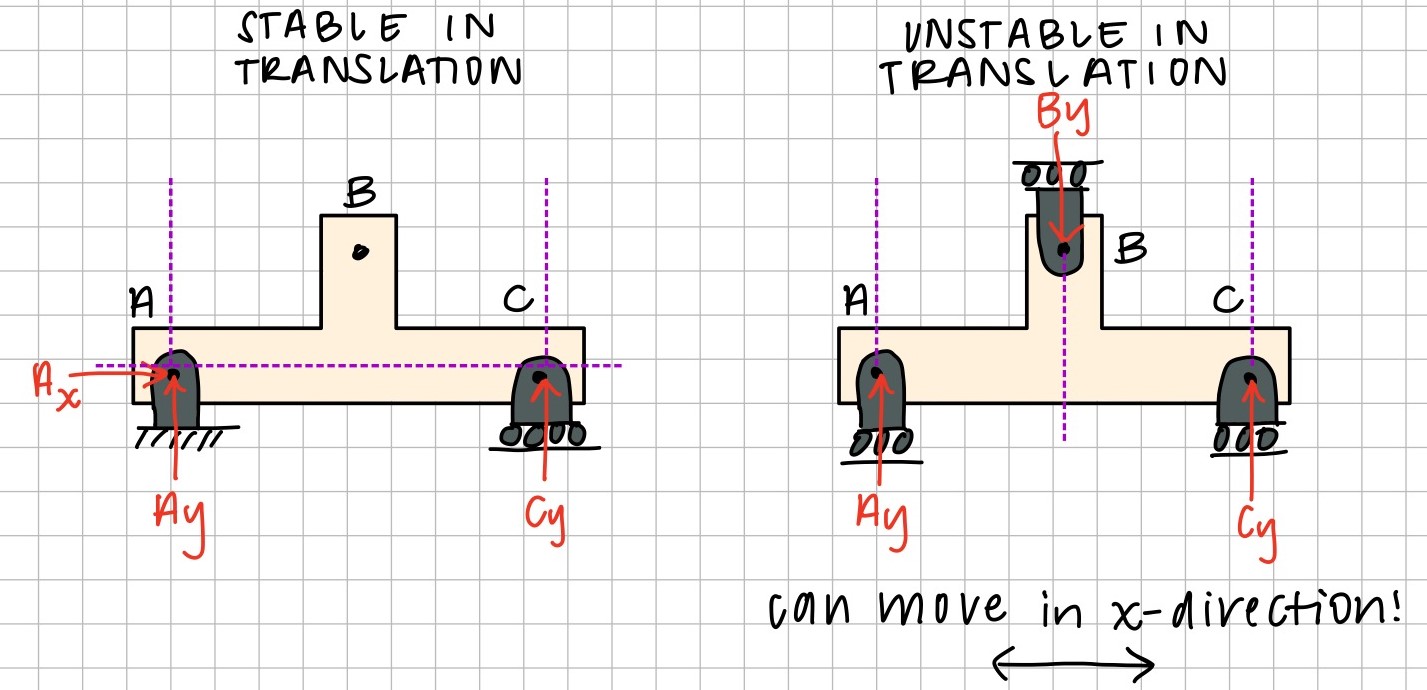 STABLE IN
TRANSLATION
B
A
C
Ax
Ay
Cy
UNSTABLE IN
TRANSLATION
By
B
A
C
Ay
Cy
can move in x-direction!